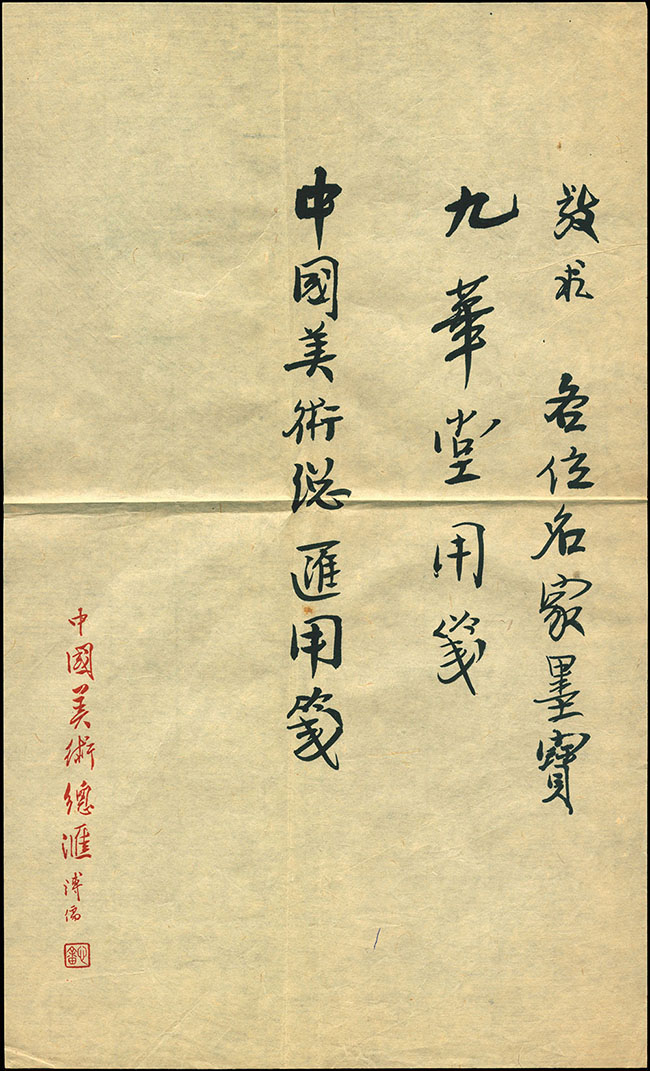 敬求 各位名家墨寶
九華堂用箋
中國美術总匯用箋
中國美術總滙 溥儒
心畬